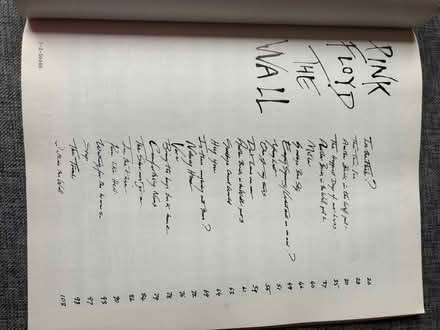 PINK
FLOYD
THE
WALL
In the Flesh? 26
The Thin Ice 28
Another Brick in the Wall part 1 30
The Happiest Days of our lives 35
Another Brick in the Wall part 2 37
Mother 40
Goodbye Blue Sky 46
Empty Spaces 49
Young Lust 51
One of my turns
Don't leave me now 59
Another Brick in the Wall part 3 61
Goodbye Cruel World 63
Hey you 64
Is there anybody out there? 69
Nobody Home 72
Vera 76
Bring the boys back home 78
Comfortably Numb 79
The Show must go on 84
In the Flesh 86
Run Like Hell 90
Waiting for the worms 93
Stop 97
The Trial 98
Outside the Wall 108